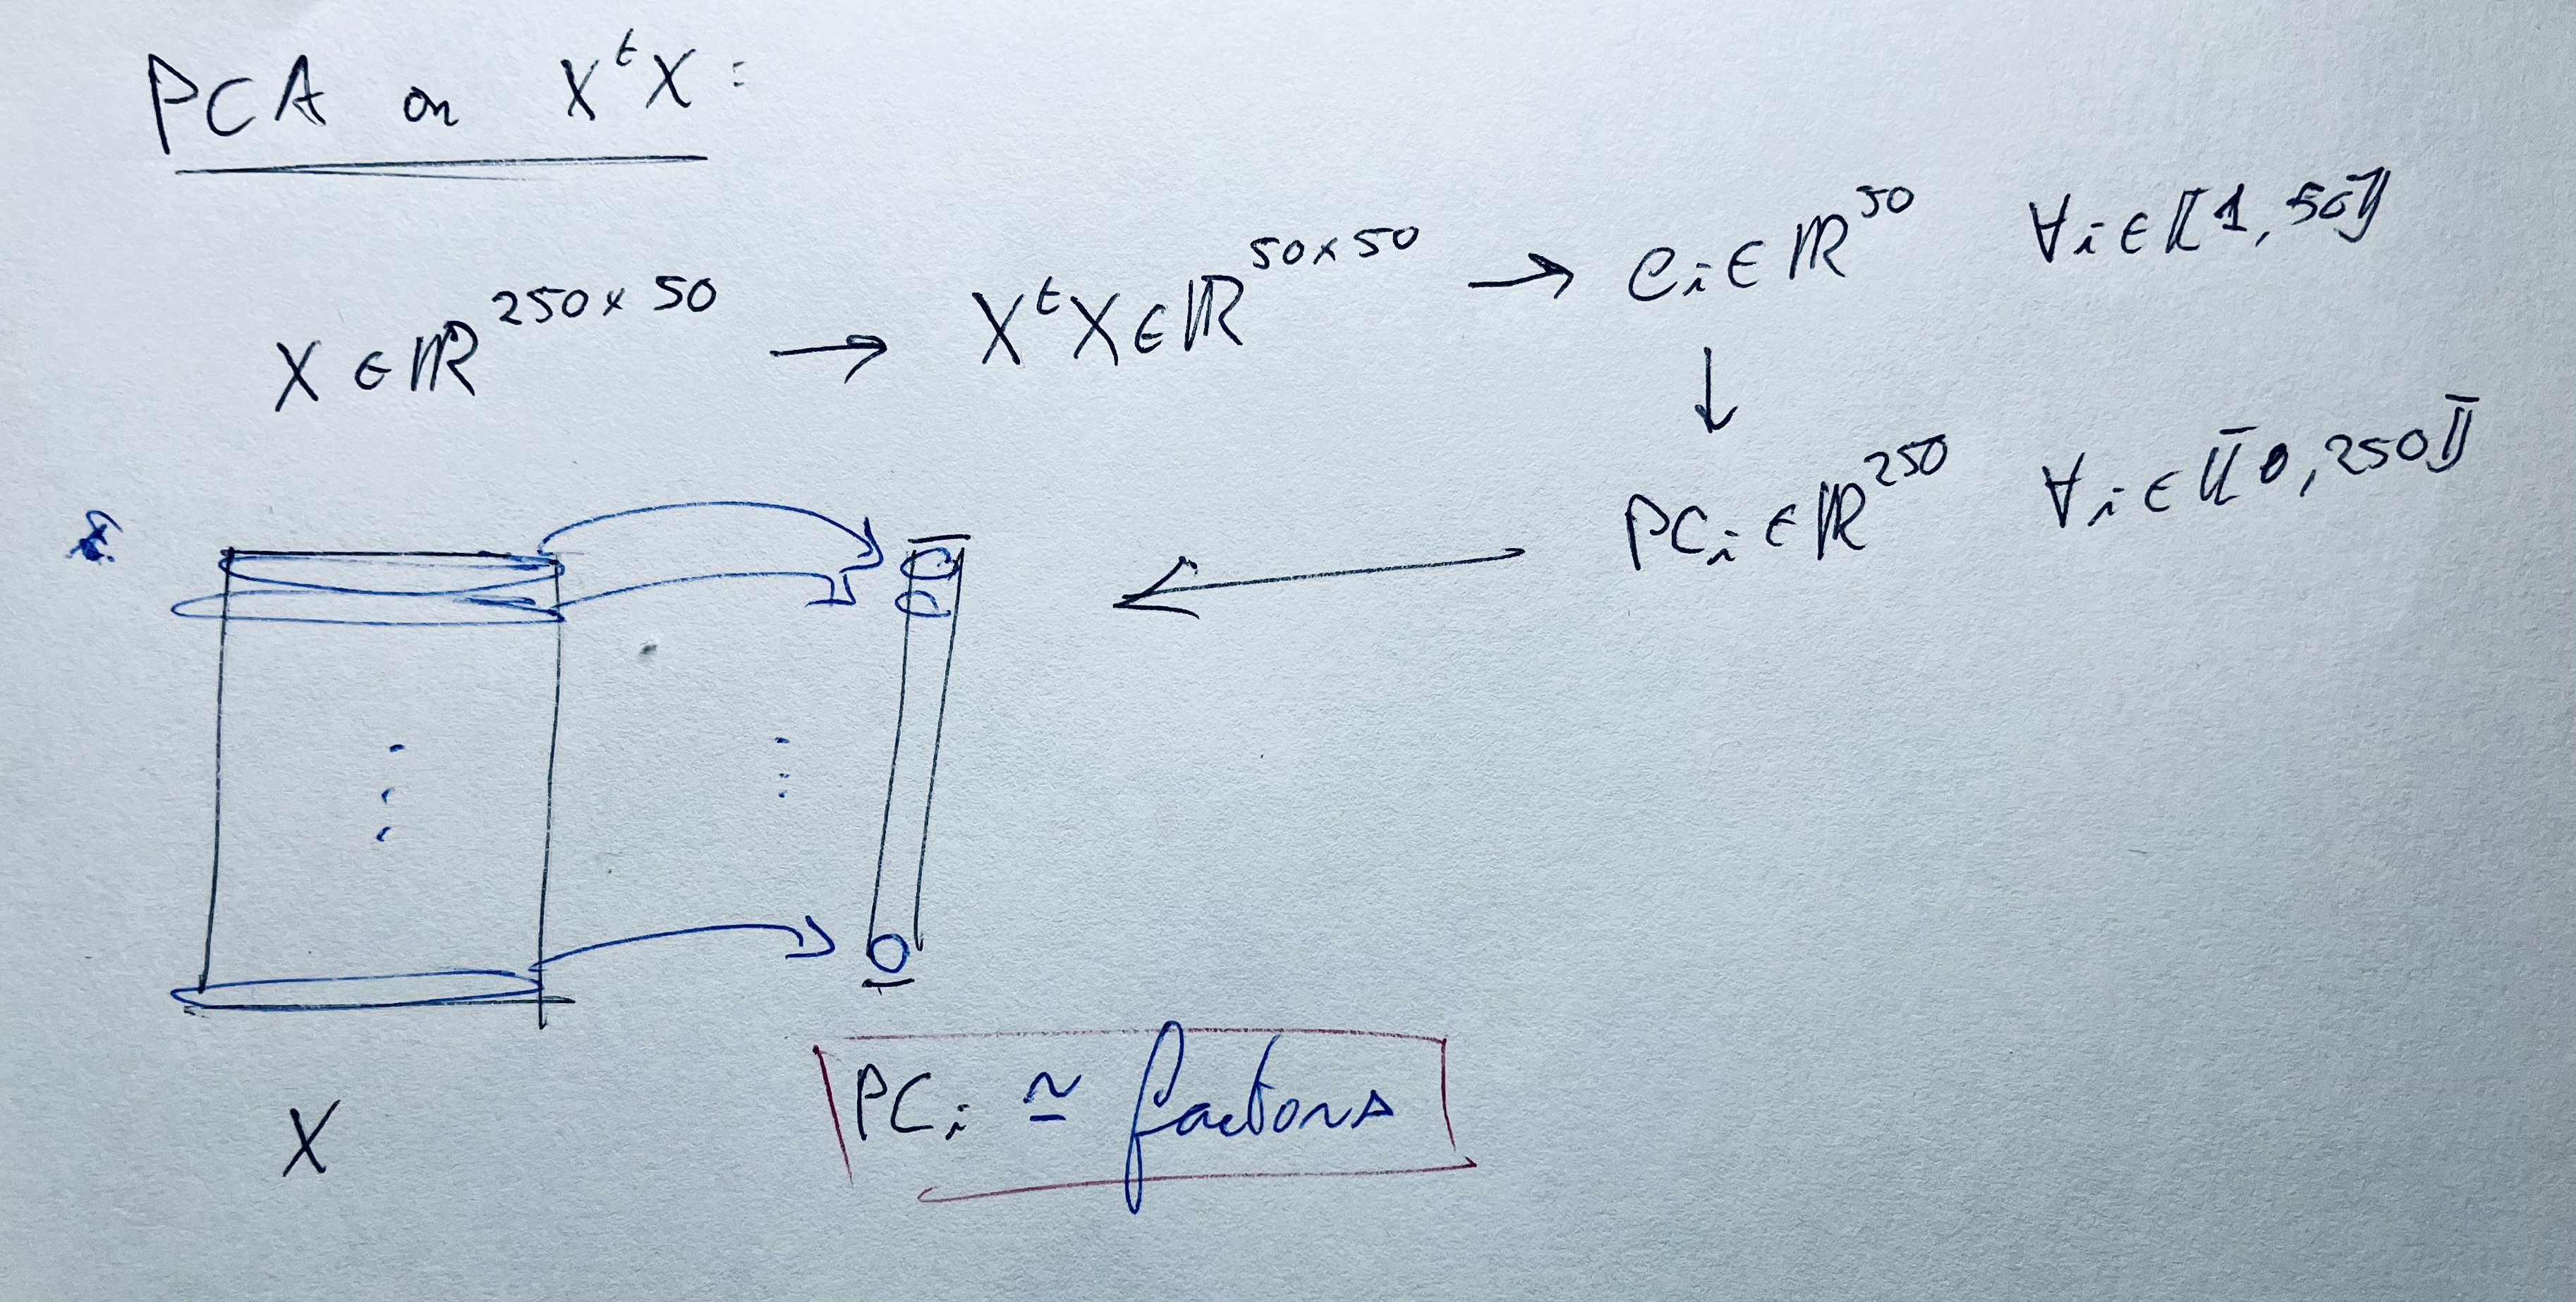 PCA on XᵗX :
X ∈ ℝ²⁵⁰ˣ⁵⁰ → XᵗX ∈ ℝ⁵⁰ˣ⁵⁰ → eᵢ ∈ ℝ⁵⁰ ∀i ∈ ⟦1, 50⟧
↓
PCᵢ ∈ ℝ²⁵⁰ ∀i ∈ ⟦0, 250⟧
X
PCᵢ ≃ factors